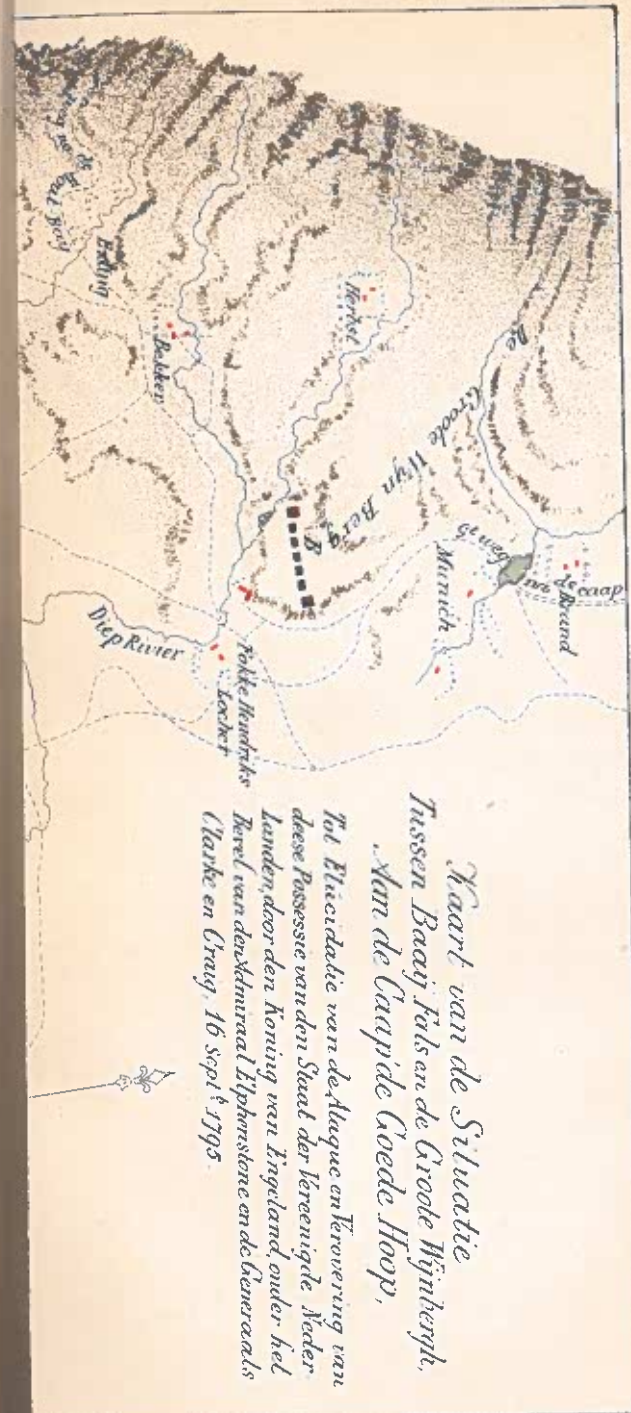 Kaart van de Situatie
Tussen Baaij Fals en de Groote Wijnbergh,
Aan de Caap de Goede Hoop,
Tot Elucidatie van de Ataque en Verovering van
deese Possessie van den Staat der Vereenigde Neder-
landen, door den Koning van Engeland, onder het
Bevel van den Admiraal Elphonstone en de Generaals
Clarke en Craig, 16 Septr. 1795.
de Caap
de Brand
G: weg nr
Munich
De Groote Wyn Berg
B
Herbst
Bakker
Eksteg
Fokke Hendriks
Locher
Diep Rivier